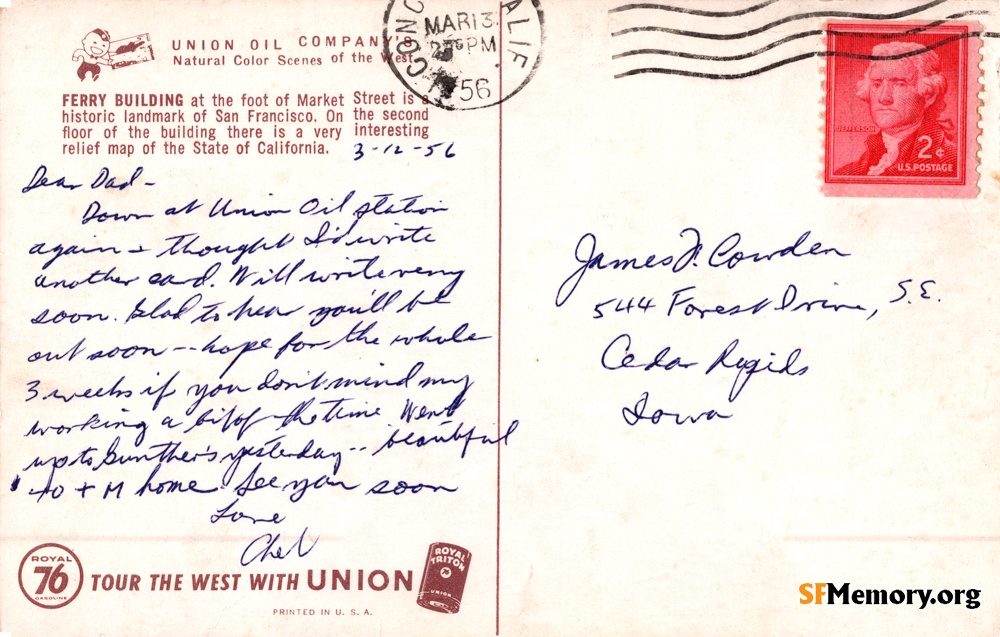 UNION OIL COMPANY'S
Natural Color Scenes of the West
CONC CALIF.
MAR 13
PM
56
FERRY BUILDING at the foot of Market Street is a
historic landmark of San Francisco. On the second
floor of the building there is a very interesting
relief map of the State of California.
3-12-56
Dear Dad-
Down at Union Oil station
again & thought I'd write
another card. Will write very
soon. Glad to hear you'll be
out soon -- hope for the whole
3 weeks if you don't mind my
working a bit of the time Went
up to Gunther's yesterday -- beautiful
home. See you soon
Love
Chet
JEFFERSON
2¢
U.S. POSTAGE
James F. Cowden
544 Forest Drive, S.E.
Cedar Rapids
Iowa
ROYAL
76
GASOLINE
TOUR THE WEST WITH UNION
ROYAL
TRITON
UNION
PRINTED IN U. S. A.
SFMemory.org